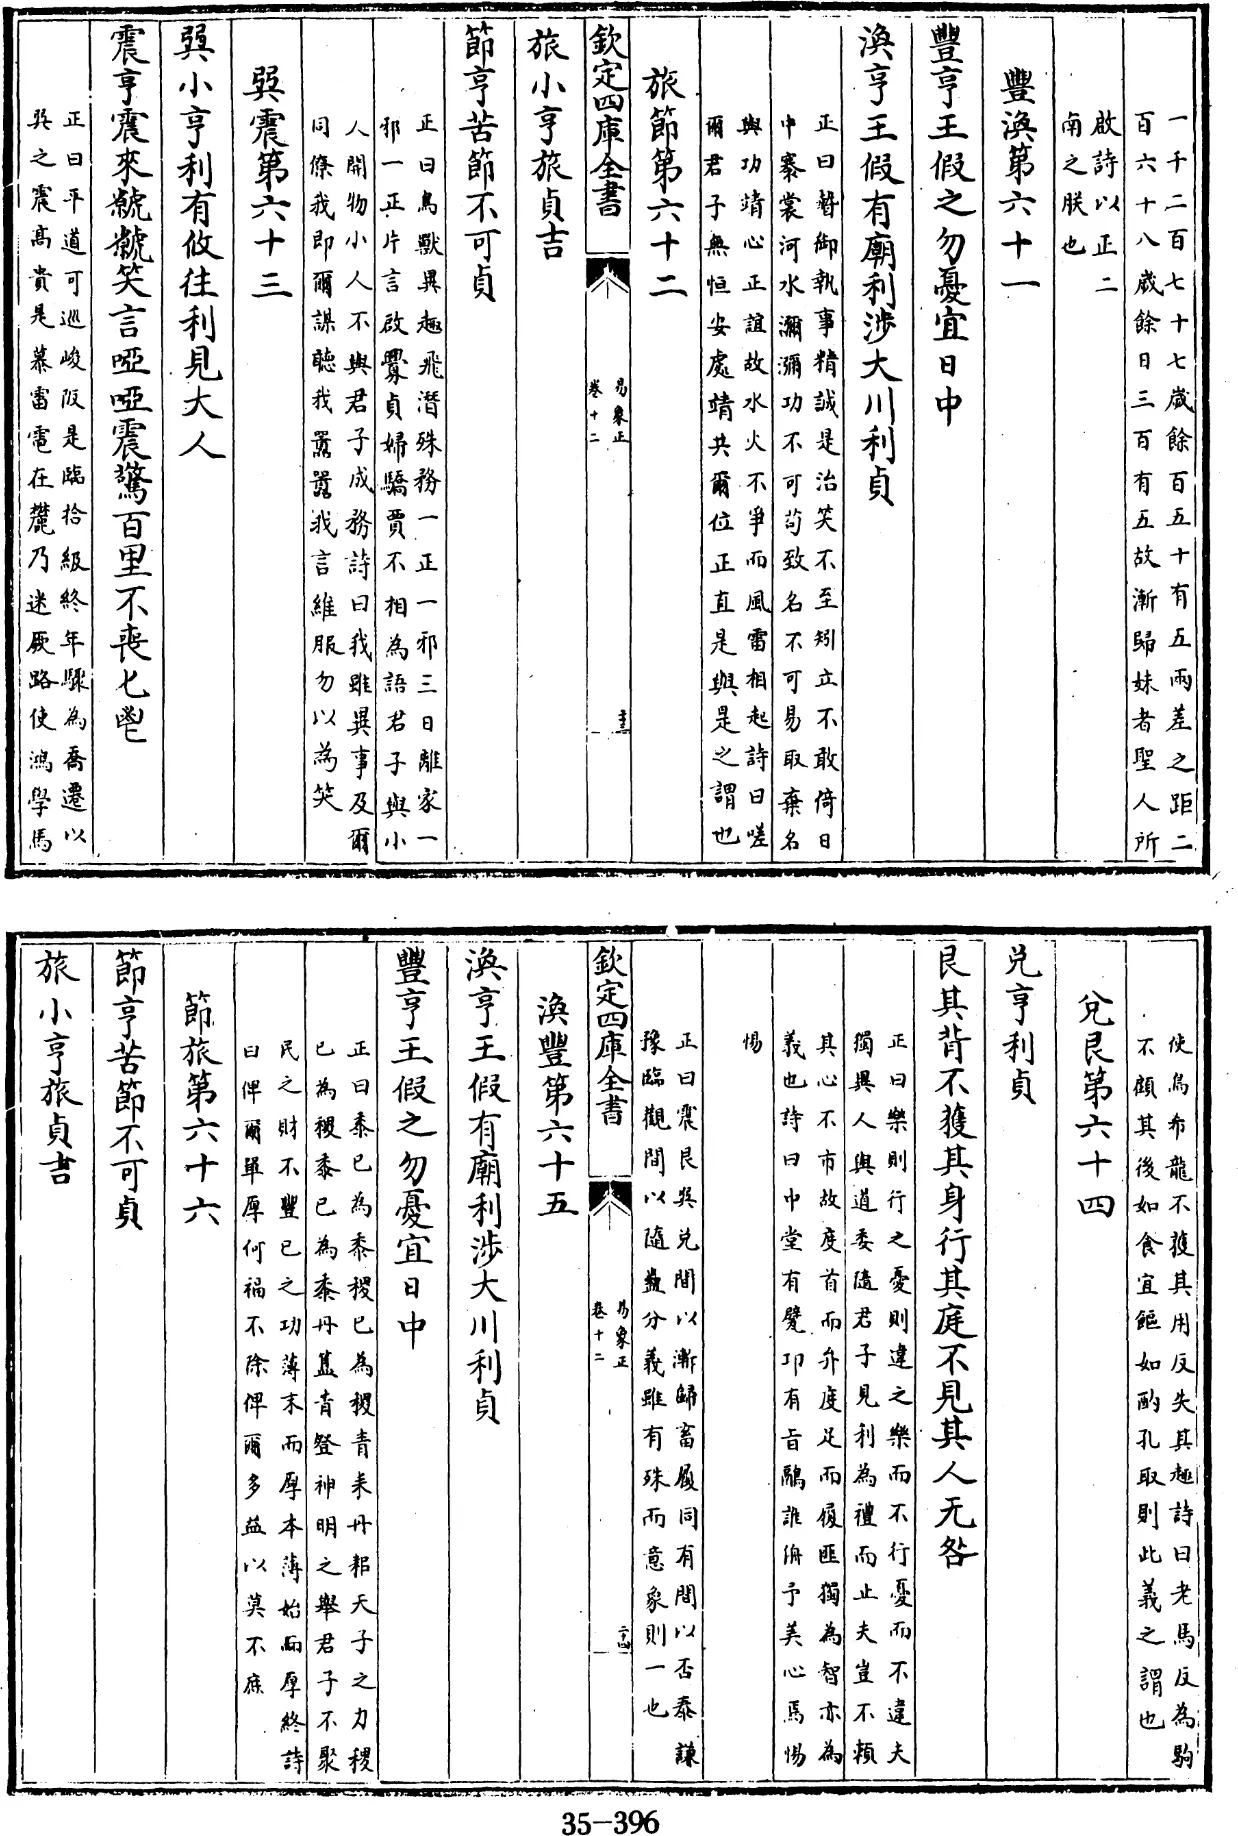 一千二百七十七歲餘百五十有五兩差之距二
百六十八歲餘日三百有五故漸歸妹者聖人所
啟詩以正二
南之朕也
豐渙第六十一
豐亨王假之勿憂宜日中
渙亨王假有廟利涉大川利貞
正曰暬御執事精誠是治笑不至矧立不敢倚日
中褰裳河水瀰瀰功不可苟致名不可易取棄名
與功靖心正誼故水火不爭而風雷相起詩曰嗟
爾君子無恒安處靖共爾位正直是與是之謂也
旅節第六十二
欽定四庫全書
易象正
卷十二
旅小亨旅貞吉
節亨苦節不可貞
正曰鳥獸異趣飛潛殊務一正一邪三日離家一
邪一正片言啟釁貞婦驕賈不相為語君子與小
人開物小人不與君子成務詩曰我雖異事及爾
同僚我即爾謀聽我嚚嚚我言維服勿以為笑
巽震第六十三
巽小亨利有攸往利見大人
震亨震來虩虩笑言啞啞震驚百里不喪匕鬯
正曰平道可巡峻阪是臨拾級終年驟為喬遷以
巽之震高貴是慕雷電在麓乃迷厥路使鴻學馬
使鳥布龍不獲其用反失其趣詩曰老馬反為駒
不顧其後如食宜饇如酌孔取則此義之謂也
兌艮第六十四
兌亨利貞
艮其背不獲其身行其庭不見其人无咎
正曰樂則行之憂則違之樂而不行憂而不違夫
獨異人與道委隨君子見利為禮而止夫豈不賴
其心不市故度首而弁度足而履匪獨為智亦為
義也詩曰中堂有甓卭有旨鷊誰侜予美心焉惕
惕
正曰震艮巽兌間以漸歸畜履同有間以否泰謙
豫臨觀間以隨蠱分義雖有殊而意象則一也
欽定四庫全書
易象正
卷十二
二十四
渙豐第六十五
渙亨王假有廟利涉大川利貞
豐亨王假之勿憂宜日中
正曰黍已為黍稷已為稷青耒丹耜天子之力稷
已為稷黍已為黍丹簋青豋神明之舉君子不聚
民之財不豐已之功薄末而厚本薄始而厚終詩
曰俾爾單厚何福不除俾爾多益以莫不庶
節旅第六十六
節亨苦節不可貞
旅小亨旅貞吉
35-396